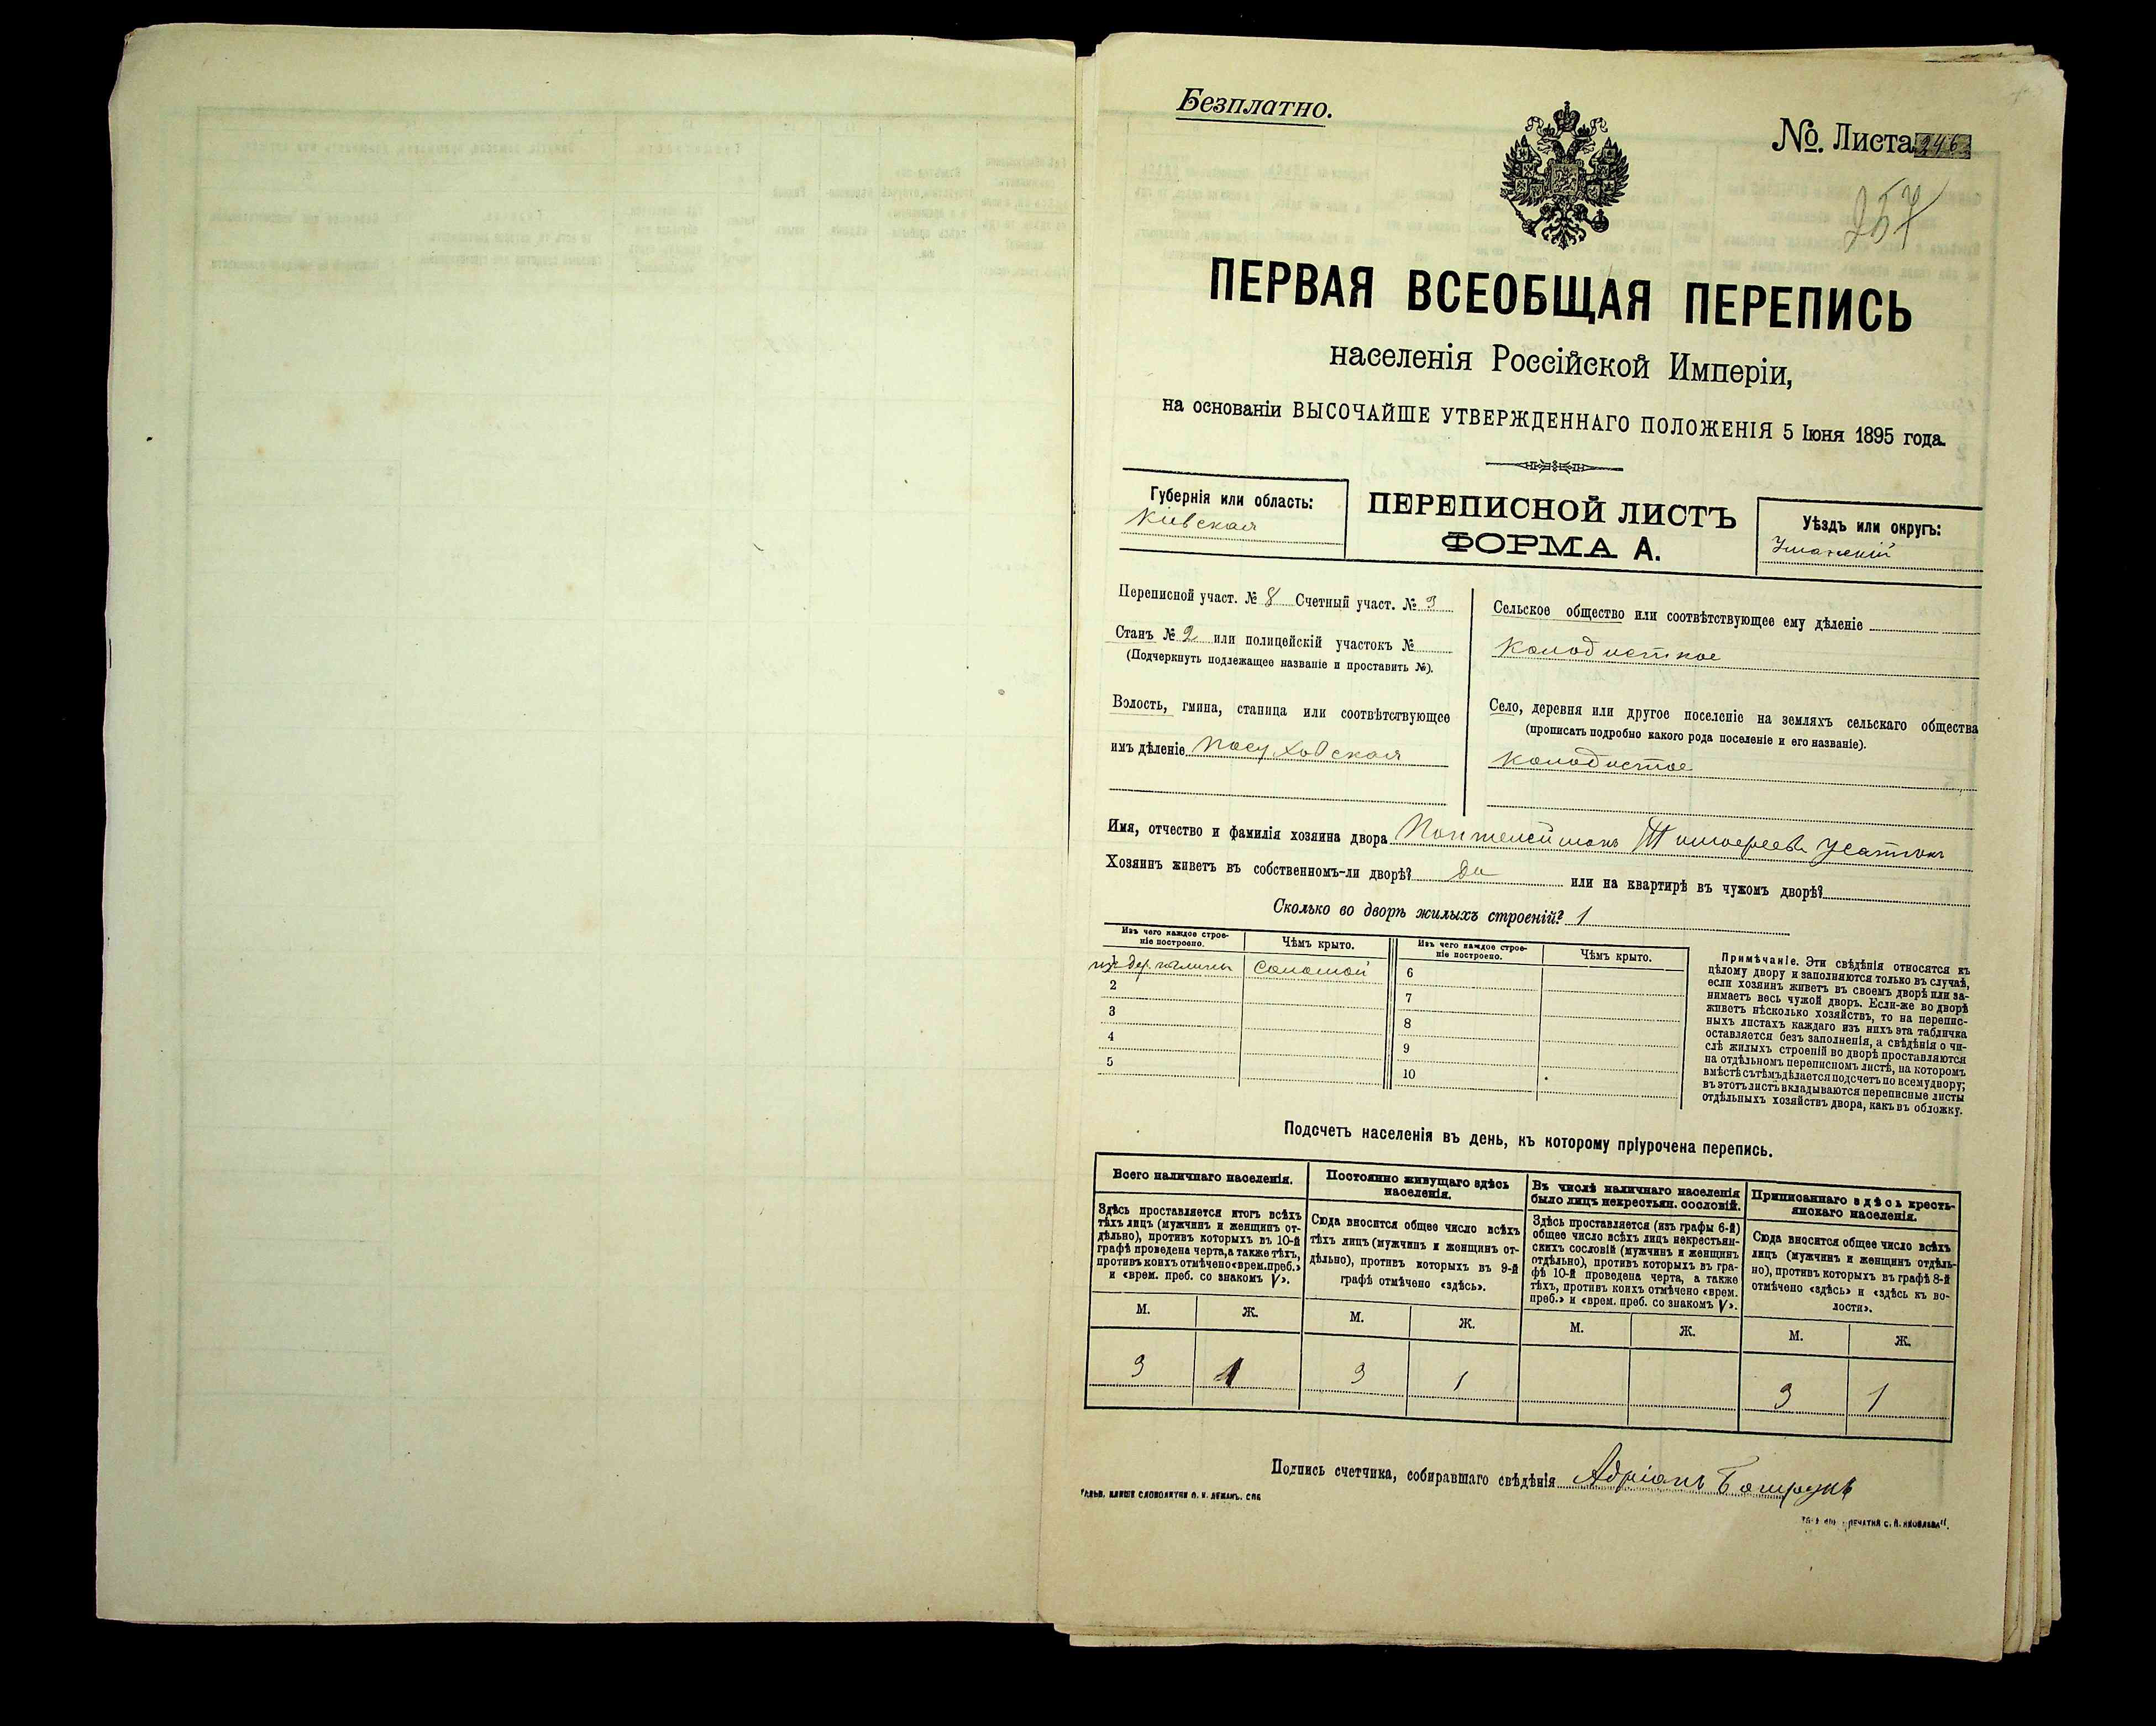 Безплатно.
№. Листа 246
257
ПЕРВАЯ ВСЕОБЩАЯ ПЕРЕПИСЬ
населенія Россійской Имперіи,
на основаніи ВЫСОЧАЙШЕ УТВЕРЖДЕННАГО ПОЛОЖЕНІЯ 5 Іюня 1895 года.
Губернія или область:
Кіевская
ПЕРЕПИСНОЙ ЛИСТЪ
ФОРМА А.
Уѣздъ или округъ:
Уманскій
Переписной участ. № 8 Счетный участ. № 3
Станъ № 2 или полицейскій участокъ №
(Подчеркнуть подлежащее названіе и проставить №).
Волость, гмина, станица или соотвѣтствующее
имъ дѣленіе Посуховская
Сельское общество или соотвѣтствующее ему дѣленіе
Колодистое
Село, деревня или другое поселеніе на земляхъ сельскаго общества
(прописать подробно какого рода поселеніе и его названіе).
Колодистое
Имя, отчество и фамилія хозяина двора Пантелеймонъ Тимофеевъ
Хозяинъ живетъ въ собственномъ-ли дворѣ? Да или на квартирѣ въ чужомъ дворѣ?
Сколько во дворѣ жилыхъ строеній? 1
Изъ чего каждое строе-
ніе построено.
Чѣмъ крыто.
Изъ чего каждое строе-
ніе построено.
Чѣмъ крыто.
изъ дер. и глины Соломой 6
2 7
3 8
4 9
5 10
Примѣчаніе. Эти свѣдѣнія относятся къ
цѣлому двору и заполняются только въ случаѣ,
если хозяинъ живетъ въ своемъ дворѣ или за-
нимаетъ весь чужой дворъ. Если-же во дворѣ
живетъ нѣсколько хозяйствъ, то на перепис-
ныхъ листахъ каждаго изъ нихъ эта табличка
оставляется безъ заполненія, а свѣдѣнія о чи-
слѣ жилыхъ строеній во дворѣ проставляются
на отдѣльномъ переписномъ листѣ, на которомъ
вмѣстѣ съ тѣмъ дѣлается подсчетъ по всему двору;
въ этотъ листъ вкладываются переписные листы
отдѣльныхъ хозяйствъ двора, какъ въ обложку.
Подсчетъ населенія въ день, къ которому пріурочена перепись.
Всего наличнаго населенія.
Здѣсь проставляется итогъ всѣхъ
тѣхъ лицъ (мужчинъ и женщинъ от-
дѣльно), противъ которыхъ въ 10-й
графѣ проведена черта, а также тѣхъ,
противъ коихъ отмѣчено «врем. преб.»
и «врем. преб. со знакомъ V».
М. Ж.
3 1
Постоянно живущаго здѣсь
населенія.
Сюда вносится общее число всѣхъ
тѣхъ лицъ (мужчинъ и женщинъ от-
дѣльно), противъ которыхъ въ 9-й
графѣ отмѣчено «здѣсь».
М. Ж.
3 1
Въ числѣ наличнаго населенія
было лицъ некрестьян. сословій.
Здѣсь проставляется (изъ графы 6-й)
общее число всѣхъ лицъ некрестьян-
скихъ сословій (мужчинъ и женщинъ
отдѣльно), противъ которыхъ въ гра-
фѣ 10-й проведена черта, а также
тѣхъ, противъ коихъ отмѣчено «врем.
преб.» и «врем. преб. со знакомъ V».
М. Ж.
Приписаннаго здѣсь кресть-
янскаго населенія.
Сюда вносится общее число всѣхъ
лицъ (мужчинъ и женщинъ отдѣль-
но), противъ которыхъ въ графѣ 8-й
отмѣчено «здѣсь» и «здѣсь къ во-
лости».
М. Ж.
3 1
Подпись счетчика, собиравшаго свѣдѣнія Адріанъ